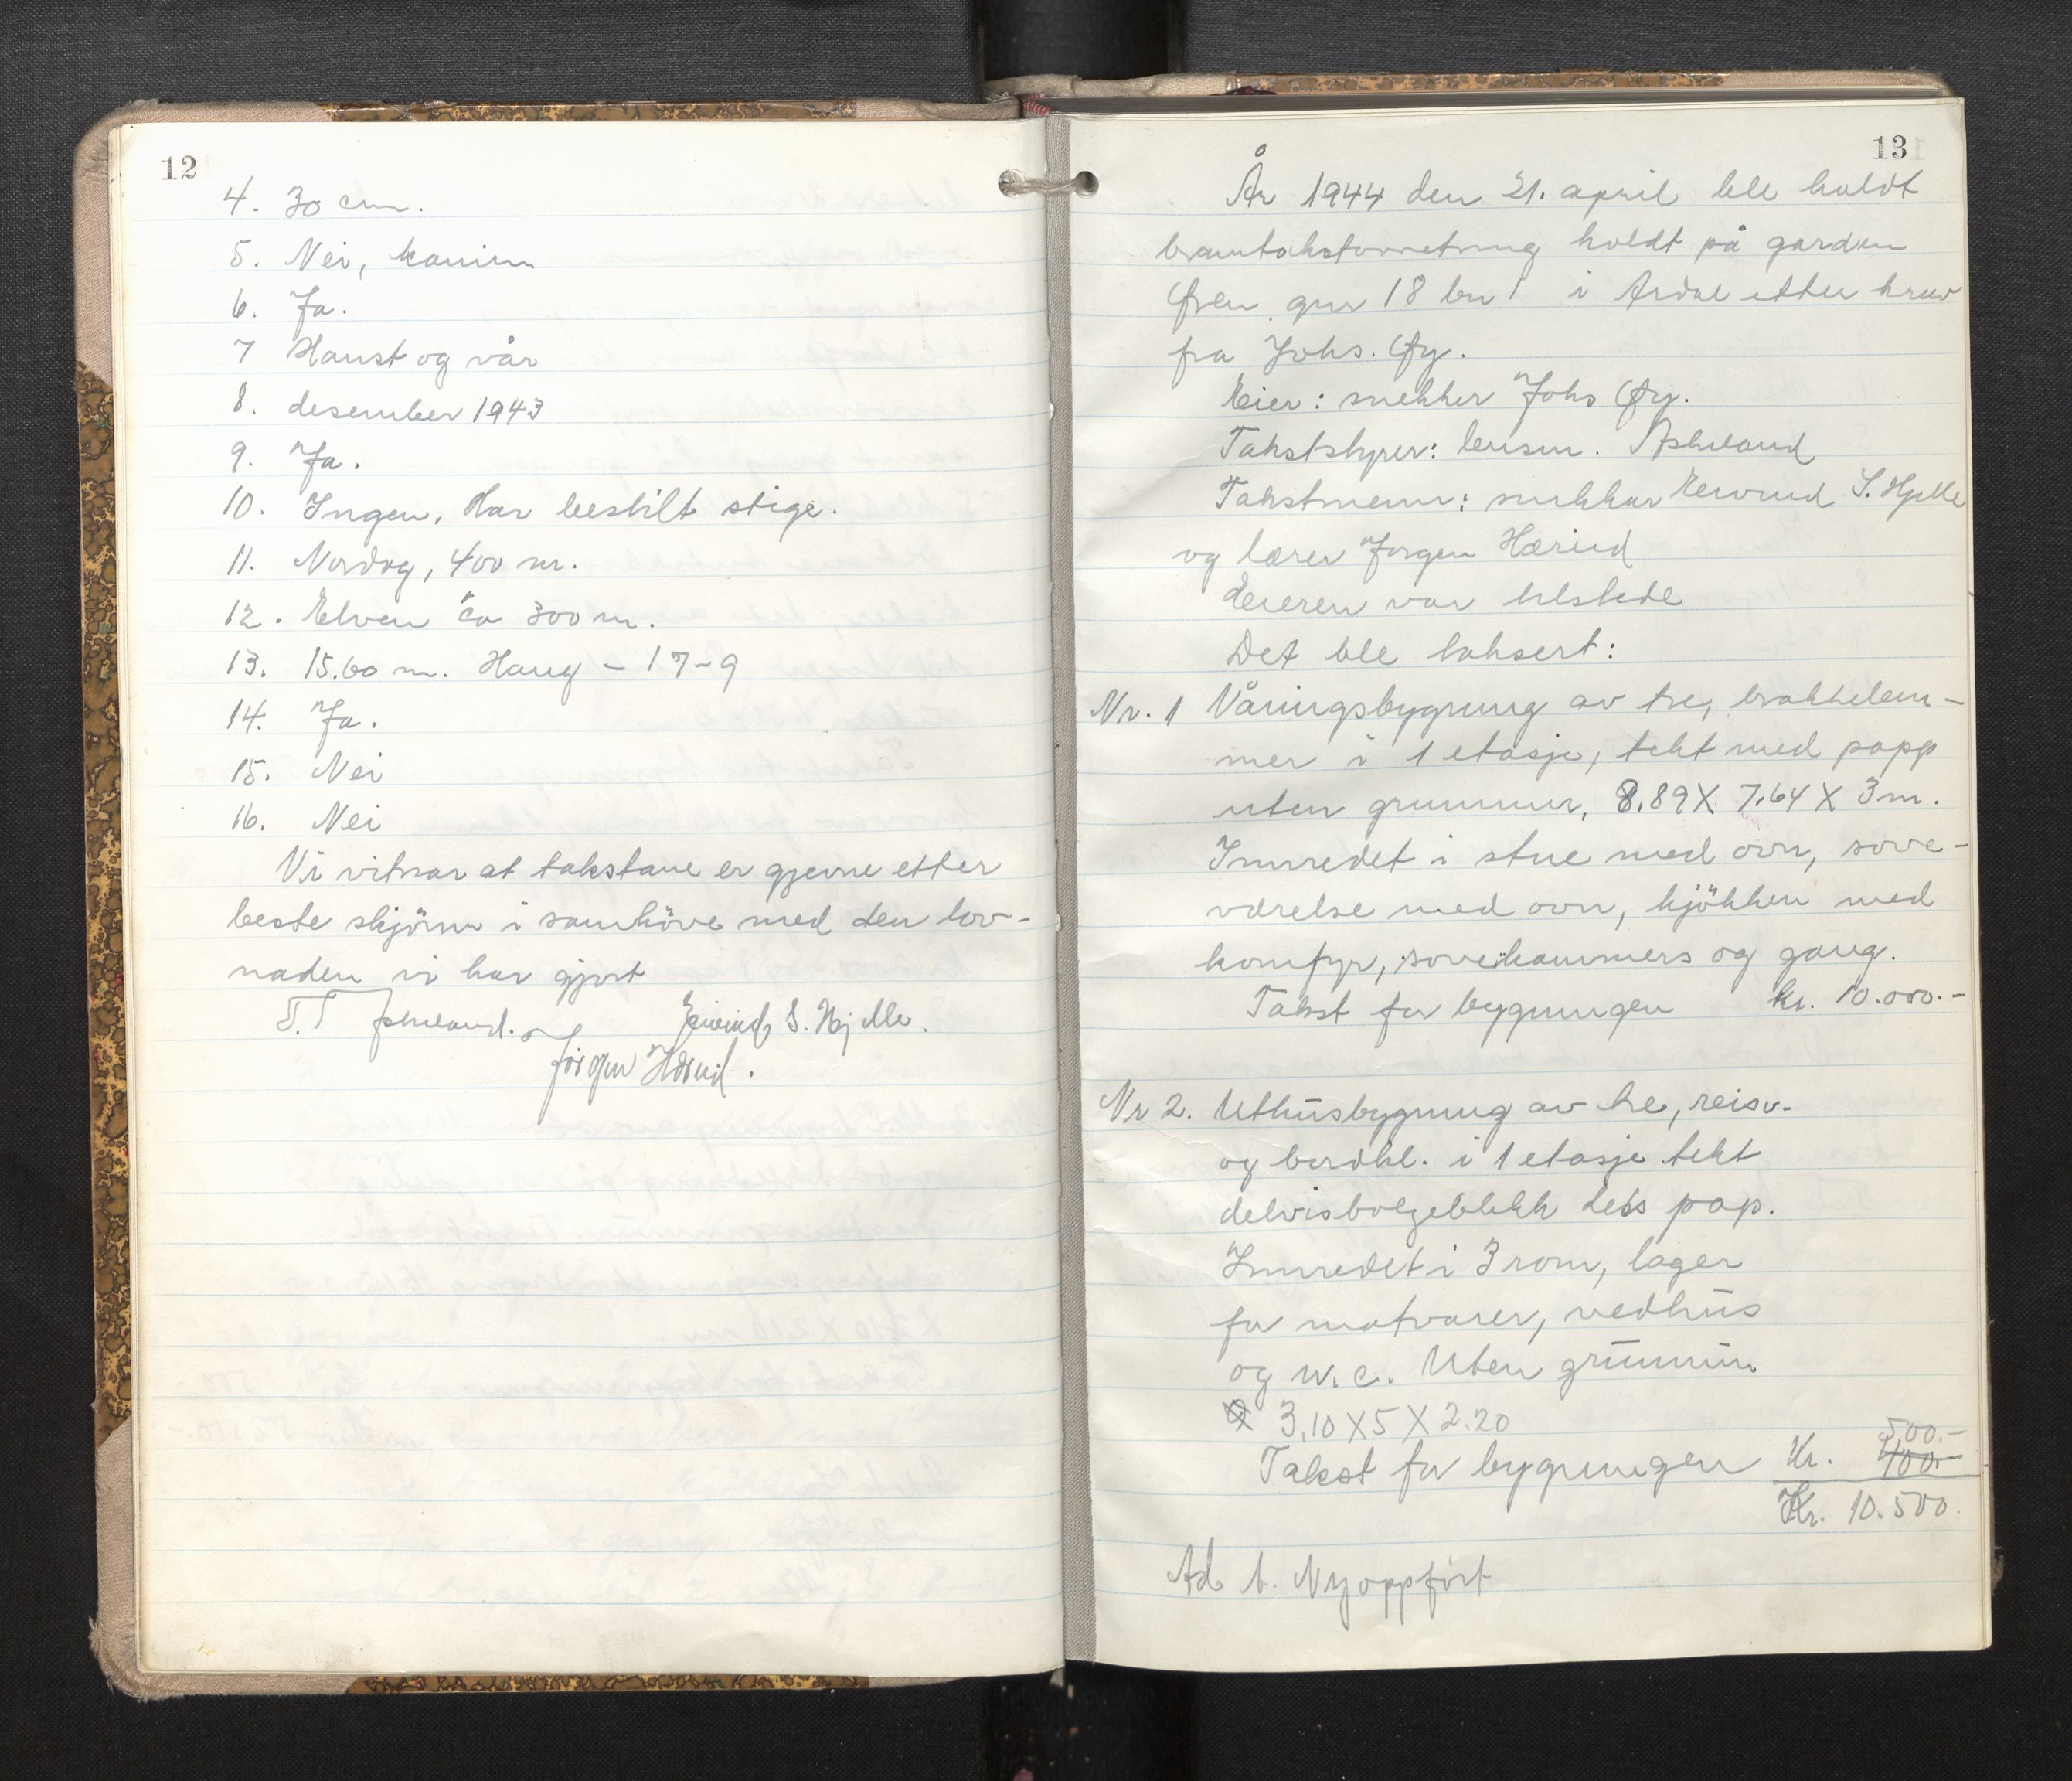 12
4. 30 cm.
5. Nei, kamin
6. Ja.
7 Haust og vår
8. desember 1943
9. Ja.
10. Ingen. Har bestilt stige.
11. Nordog, 400 m.
12. Elven ca 300 m.
13. 15.60 m. Haug - 17-9
14. Ja.
15. Nei
16. Nei
Vi vitnar at takstane er gjevne etter
beste skjönn i samhöve med den lov-
naden vi har gjort
T. Askeland. Eivind S. Hjelle.
Jörgen Hærid.
13
År 1944 den 21. april ble holdt
branntakstforretning holdt på garden
Øren gnr 18 bn 1 i Årdal etter krav
fra Johs. Øy.
Eier: snekker Johs Øy.
Takststyrer: lensm. Askeland
Takstmenn: snekker Eivind S. Hjelle
og lærer Jørgen Hærid
Eieren var tilstede
Det ble taksert:
Nr. 1 Våningsbygning av tre, brakkelem-
mer i 1 etasje, tekt med papp
uten grunnmur, 8.89 X 7.64 X 3 m.
Innredet i stue med ovn, sove-
værelse med ovn, kjökken med
komfyr, sovekammers og gang.
Takst for bygningen kr. 10.000.-
Nr 2. Uthusbygning av tre, reisv.
og bordkl. i 1 etasje tekt
delvis bølgeblikk dels pap.
Innredet i 3 rom, lager
for matvarer, vedhus
og w.c. Uten grunnmur
3.10 X 5 X 2.20
500.-
Takst for bygningen Kr. 400.-
Kr. 10.500.
Ad 1. Nyoppført